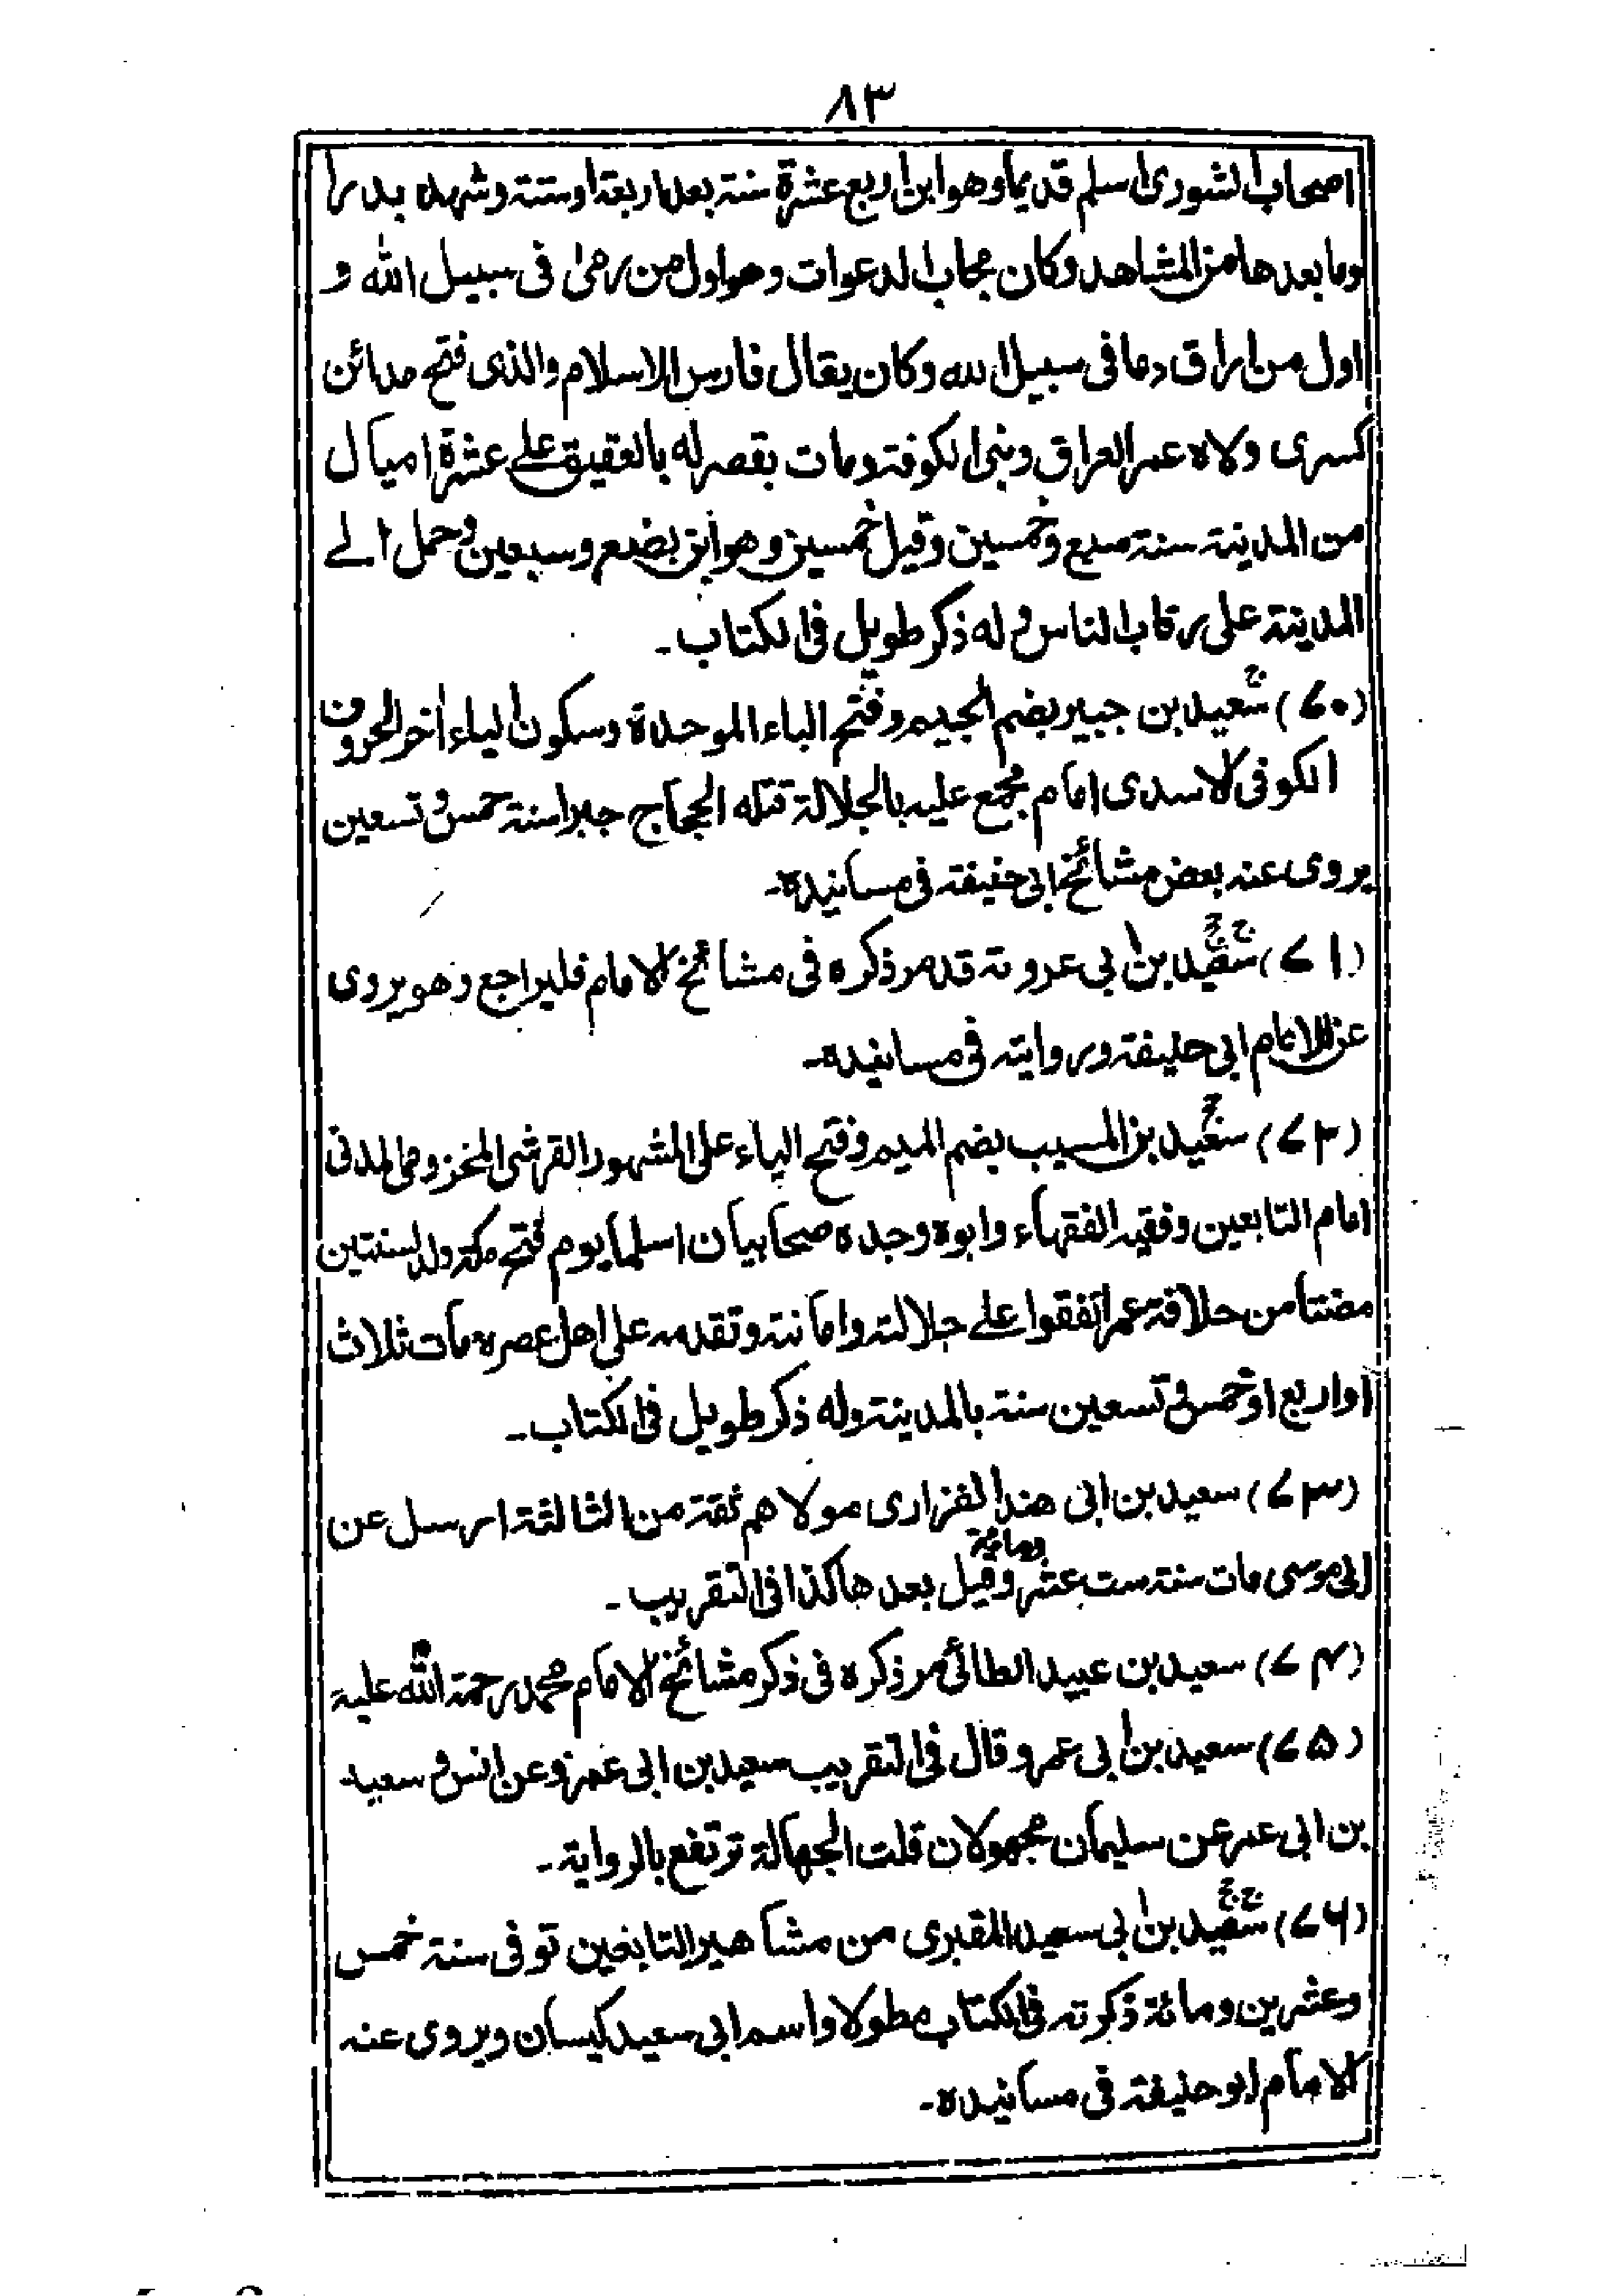 ٨٣
اصحاب الشورى اسلم قديما وهو ابن اربع عشرة سنة بعد اربعة او ستة وشهد بدرا
وما بعدها من المشاهد وكان مجاب الدعوات وهو اول من رمىٰ فى سبيل الله و
اول من اراق دما فى سبيل الله وكان يقال فارس الاسلام والذى فتح مدائن
كسرى ولاه عمر العراق وبنى الكوفة ومات بقصر له بالعقيق على عشرة اميال
من المدينة سنة سبع وخمسين وقيل خمسين وهو ابن بضع وسبعين وحمل الے
المدينة على رقاب الناس وله ذكر طويل فى الكتاب۔
(٧٠) سعيد بن جبير بضم الجيم وفتح الباء الموحدة وسكون الياء اٰخر الحروف
الكوفى الاسدى امام مجمع عليه بالجلالة قتله الحجاج جبرا سنة خمس وتسعين
يروى عنه بعض مشائخ ابى حنيفة فى مسانيده۔
(٧١) سعيد بن ابى عروبة قد مر ذكره فى مشائخ الامام فليراجع وهو يروى
عن الامام ابى حنيفة وروايته فى مسانيده۔
(٧٢) سعيد بن المسيب بضم الميم وفتح الياء على المشهور القرشى المخزومى المدنى
امام التابعين وفقيه الفقهاء وابوه وجده صحابيان اسلما يوم فتح مكة ولد لسنتين
مضتا من خلافة عمر اتفقوا علے جلالته وامانته وتقدمه على اهل عصره مات ثلاث
او اربع او خمس وتسعين سنة بالمدينة وله ذكر طويل فى الكتاب۔
(٧٣) سعيد بن ابى هند الفزارى مولاهم ثقة من الثالثة ارسل عن
ابى موسى مات سنة ست عشر ومائة وقيل بعدها كذا فى التقريب۔
(٧٤) سعيد بن عبيد الطائى مر ذكره فى ذكر مشائخ الامام محمد رحمة الله عليه
(٧٥) سعيد بن ابى عمرو قال فى التقريب سعيد بن ابى عمرو عن انس و سعيد
بن ابى عمر عن سليمان مجهولان قلت الجهالة ترتفع بالرواية۔
(٧٦) سعيد بن ابى سعيد المقبرى من مشاهير التابعين توفى سنة خمس
وعشرين ومائة ذكرته فى الكتاب مطولا واسم ابى سعيد كيسان ويروى عنه
الامام ابو حنيفة فى مسانيده۔